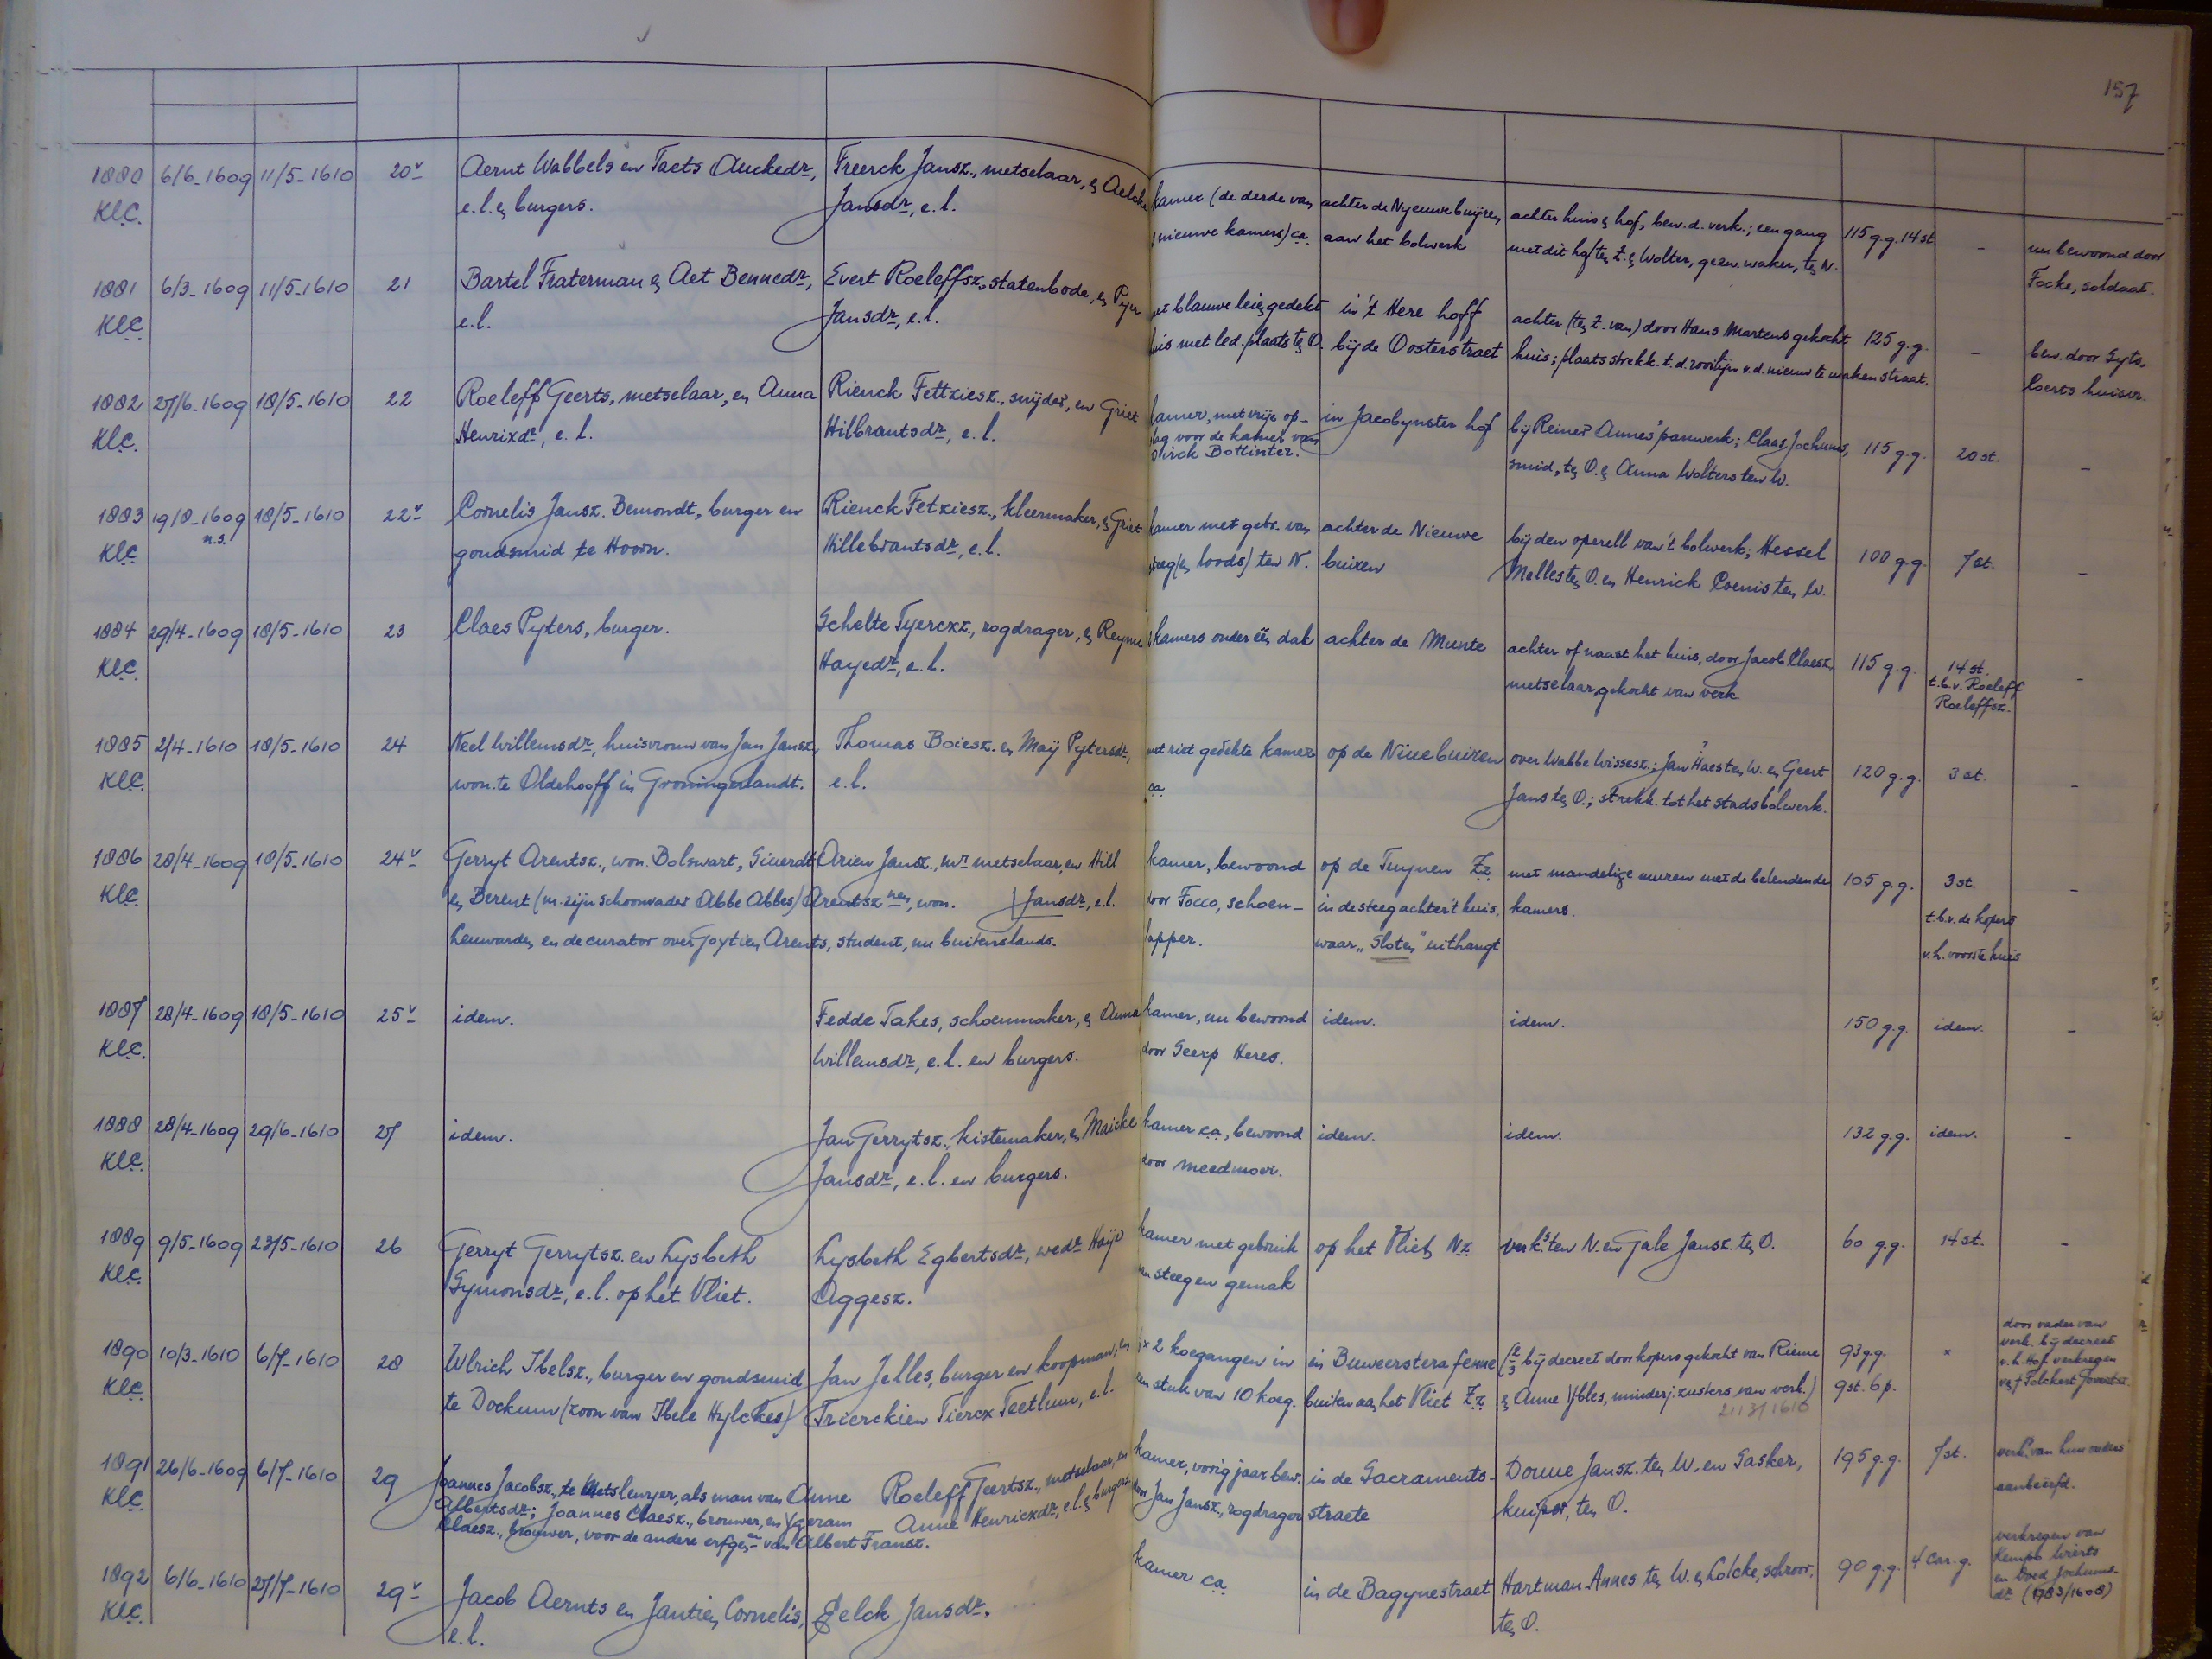 157
1880 6/6-1609 11/5-1610 20v Aernt Wabbels en Taets Auckedr, Freerck Jansz., metselaar, en Aelcke kamer (de derde van achter de Nyeuwebuijren, achter huis en hof, bew. d. verk.; een gang 115 g.g. 14 st. - nu bewoond door
Klc. e.l. en burgers. Jansdr, e.l. nieuwe kamers) ca. aan het bolwerk met dit hof ten Z. en Wolter, gezw. waker, ten N. Focke, soldaat.
1881 6/3-1609 11/5-1610 21 Bartel Fraterman en Aet Bennedr, Evert Roeleffsz., statenbode, en Pyer met blauwe leien gedekt in 't Here hoff achter (ten Z. van) door Hans Martens gekocht 125 g.g. - bew. door Syts,
Klc. e.l. Jansdr, e.l. huis met led. plaats ten O. bij de Oosterstraet huis; plaats strekk. t. d. rooilijn v.d. nieuw te maken straat. Coerts huisvr.
1882 27/6-1609 18/5-1610 22 Roeleff Geerts, metselaar, en Anna Rienck Fettziesz., snijder, en Griet kamer, met vrije op- in Jacobynster hof bij Reiner Annes' panwerk; Claas Jochums, 115 g.g. 20 st. -
Klc. Henrixdr, e.l. Hilbrantsdr, e.l. slag voor de kamer van smid, ten O. en Anna Wolters ten W.
Dirck Bottinter.
1883 19/8-1609 18/5-1610 22v Cornelis Jansz. Bemondt, burger en Rienck Fetziesz., kleermaker, en Griet kamer met gebr. van achter de Nieuwe bij den operell van 't bolwerk; Hessel 100 g.g. 7 st. -
n.s.
Klc. goudsmid te Hoorn. Hillebrantsdr, e.l. steeg (en loods) ten N. buiren Melles ten O. en Henrick Coenis ten W.
1884 29/4-1609 18/5-1610 23 Claes Pyters, burger. Schelte Tjerckz., zogdrager, en Reyme kamers onder één dak achter de Munte achter of naast het huis, door Jacob Claesz., 115 g.g. 14 st. -
Klc. Hayedr, e.l. metselaar, gekocht van verk t.b.v. Roeleff
Roeleffsz.
1885 2/4-1610 18/5-1610 24 Neel Willemsdr, huisvrouw van Jan Jansz., Thomas Boiesz. en Maij Pytersdr, met riet gedekte kamer op de Niuebuiren over Wabbe Wissesz.; Jan Haes ten W. en Geert 120 g.g. 3 st. -
Klc. won. te Oldehooff in Groningerlandt. e.l. ca. Jans ten O.; strekk. tot het stadsbolwerk.
1886 28/4-1609 18/5-1610 24v Gerryt Arentsz., won. Bolswart, Siuerdt Arien Jansz., mr metselaar, en Hill kamer, bewoond op de Tuynen Zz. met mandelige muren met de belendende 105 g.g. 3 st. -
Klc. en Berent (m. zijn schoonvader Abbe Abbes) Arentsz nen, won. Jansdr, e.l. door Focco, schoen- in de steeg achter 't huis, kamers. t.b.v. de kopers
Leuwarden en de curator over Goytien Arents, student, nu buitenslands. lapper. waar "Sloten" uithangt v.h. voorste huis
1887 28/4-1609 18/5-1610 25v idem. Fedde Takes, schoenmaker, en Anna kamer, nu bewoond idem. idem. 150 g.g. idem. -
Klc. Willemsdr, e.l. en burgers. door Seerp Heres.
1888 28/4-1609 29/6-1610 27 idem. Jan Gerrytsz., kistemaker, en Maicke kamer ca., bewoond idem. idem. 132 g.g. idem. -
Klc. Jansdr, e.l. en burgers. door Meedmoer.
1889 9/5-1609 23/5-1610 26 Gerryt Gerrytsz. en Lysbeth Lysbeth Egbertsdr, wedr Haye kamer met gebruik op het Vliet, Nz. verk.s ten N. en Gale Jansz. ten O. 60 g.g. 14 st. -
Klc. Symonsdr, e.l. op het Vliet. Aggesz. van steeg en gemak
1890 10/3-1610 6/7-1610 28 Ulrich Ibelsz., burger en goudsmid Jan Jelles, burger en koopman, en 2 koegangen in in Buweerstera fenne (2/3 bij decreet door kopers gekocht van Rieme 93 g.g. x door vader van
Klc. te Dockum (zoon van Ibele Hylckes) Trierckien Tiercx Teetlum, e.l. een stuk van 10 koeg. buiten aan het Vliet Zz. en Anne Ybles, minderj. zusters van verk.) 9 st. 6 p. verk. bij decreet
21/3/1610 v.h. Hof verkregen
v. Folckert Joversz.
1891 26/6-1609 6/7-1610 29 Joannes Jacobsz., te Metslewyer, als man van Anne Roeleff Geertsz., metselaar, en kamer, vorig jaar bew. in de Sacraments- Douue Jansz. ten W. en Gasker, 195 g.g. 7 st. verk. van hun ouders
Klc. Albertsdr; Joannes Claesz., brouwer, en Ygeram Anne Henricxdr, e.l. en burgers. door Jan Jansz., zogdrager straete kuiper, ten O. aanbeërfd.
Claesz., brouwer, voor de andere erfgen.en van Albert Fransz.
1892 6/6-1610 27/7-1610 29v Jacob Aernts en Jantien Cornelis, Jelck Jansdr. kamer ca. in de Bagynestraet Hartman Annes ten W. en Lolcke, schroor, 90 g.g. 4 car. g. verkregen van
Klc. e.l. ten O. Kempo Wierts
en Voed Jochums-
dr (1783/1608)